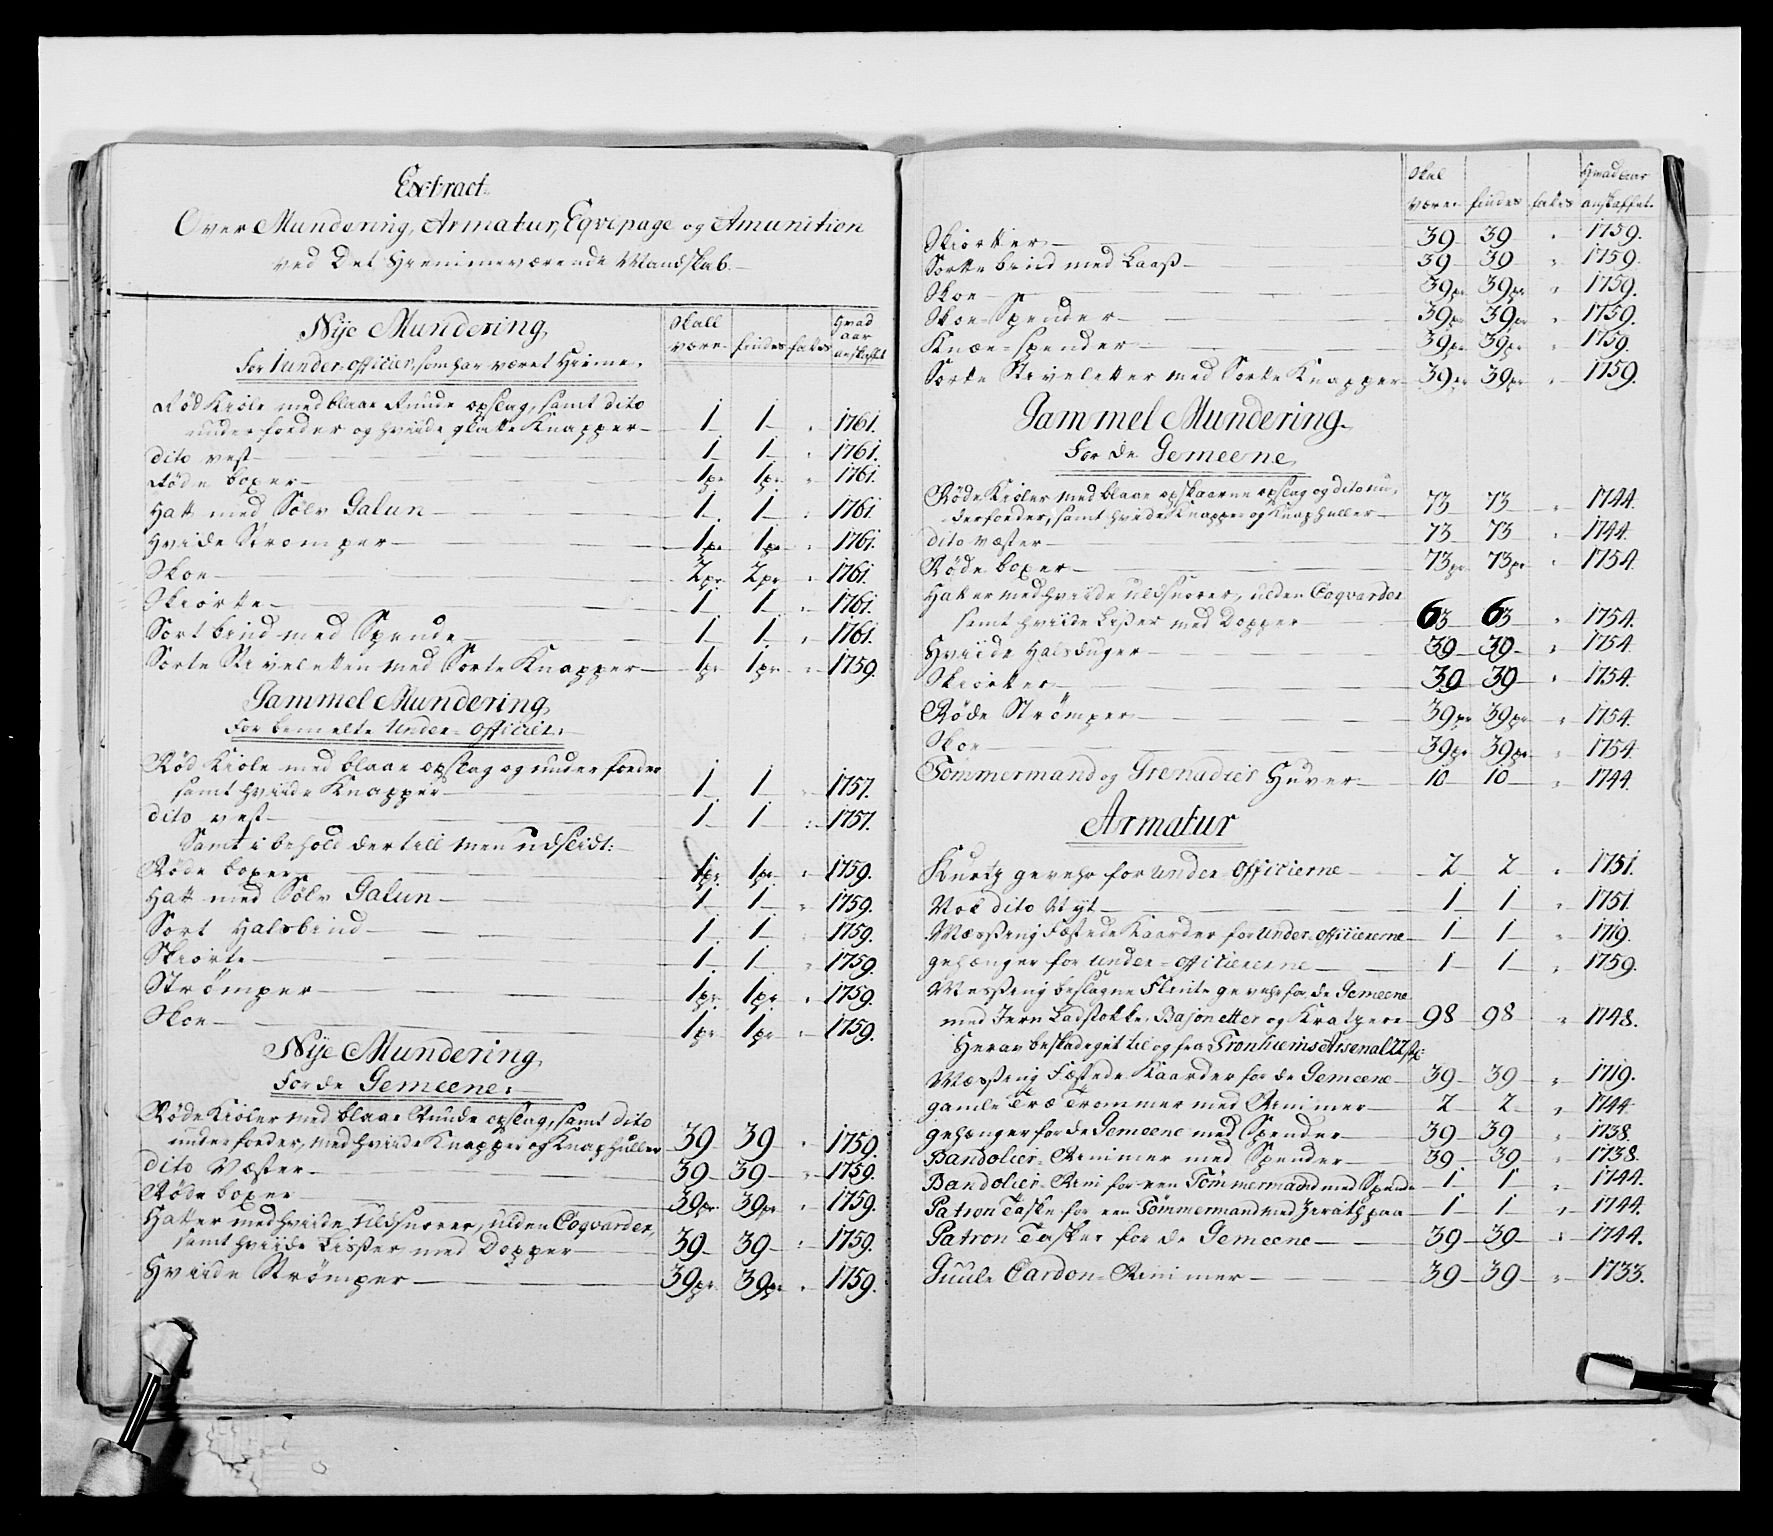 Extract
Over Mundering, Armatur, Eqvipage og Amunition
ved Det Hiemmeværende Mandskab.
Nÿe Mundering, Skall være findes fates Hvad aar anskaffet
For 1 under-officier, som har været Hieme.
Rød Kiole med blaae Runde opslag, samt dito
underfoeder og hviide glatte Knapper — 1 1 „ 1761.
dito vest — 1 1 „ 1761.
Røde boxer — 1pr 1pr „ 1761
Hatt med Sølv Galun — 1 1 „ 1761
Hvide Strømper — 1pr 1pr „ 1761.
Skoe — 2pr 2pr „ 1761.
Skiorte — 1 1 „ 1761.
Sort bind med Spende — 1 1 „ 1761.
Sorte Stiveletten med Sorte Knapper — 1pr 1pr „ 1759.
Gammel Mundering,
For bemelte Under-Officier:
Rød Kiole med blaae opslag og underfoeder
samt hviide Knapper — 1 1 „ 1757.
dito vest — 1 1 „ 1757.
Samt i behold dertill men udslidt:
Røde boxer — 1pr 1pr „ 1759.
Hatt med Sølv Galun — 1 1 „ 1759.
Sort Halsbind — 1 1 „ 1759.
Skiorte — 1 1 „ 1759.
Strømper — 1pr 1pr „ 1759.
Skoe — 1pr 1pr „ 1759.
Nÿe Mundering,
For de Gemeene:
Røde Kioler med blaae Runde opslag, samt dito
underfoeder, med hviide Knapper og Knaphuller 39 39 „ 1759.
dito Væster — 39 39 „ 1759.
Røde boxer — 39pr 39pr „ 1759.
Hatter med hviide Uldsnorer, ulden Coqvarder,
samt hviide Lisser med Dopper — 39 39 „ 1759.
Hviide Strømper — 39pr 39pr „ 1759.
Skal være findes fates Hvad aar anskaffet
Skiorter — 39 39 „ 1759.
Sorte bind med Laaß — 39 39 „ 1759.
Skoe — 39pr 39pr „ 1759.
Skoe-Spender — 39pr 39pr „ 1759.
Knæe-spender — 39pr 39pr „ 1759.
Sorte Stiveletter med Sorte Knapper — 39pr 39pr „ 1759.
Gammel Mundering.
For de Gemeene,
Røde Kioler med blaae opskaarne opslag og dito un-
derfoeder, samt hvide Knapper og Knaphuller — 73 73 „ 1744.
dito væster — 73 73 „ 1744.
Røde boxer — 73pr 73pr „ 1754.
Hatter med hviide Uldsnorer, ulden Coqvarder
samt hviide Lisser med Dopper — 63 63 „ 1754.
Hviide Halsduger — 39 39 „ 1754.
Skiorter — 39 39 „ 1754.
Røde Strømper — 39pr 39pr „ 1754.
Skoe — 39pr 39pr „ 1754.
Tømmermand og Grenadier Huver — 10 10 „ 1744.
Armatur
Kurtz gevehr for Under-Officierne — 2 2 „ 1751.
Nok dito Nyt — 1 1 „ 1751.
Mæssing Fæstede Kaarder for Under-officiererne — 1 1 „ 1719.
gehænger for Under-officiererne — 1 1 „ 1759.
Messing beslagne Flinte gevehr for de Gemeene
med Jern Ladstokke, Bajonetter og Kratzere — 98 98 „ 1748.
Herav beskadeget til og fra Tronhiems Arsenal 22 st:
Mæssing Fæstede Kaarder for de Gemeene — 39 39 „ 1719.
gamle Træ Trommer med Remmer — 2 2 „ 1744.
gehænger for de Gemeene med Spender — 39 39 „ 1738.
Bandolier-Remmer med Spender — 39 39 „ 1738.
Bandolier-Rem for een Tømmermand med Spende 1 1 „ 1744.
Patron Taske for een Tømmermand med Zirath paa 1 1 „ 1744.
Patron Tasker for de Gemeene — 39 39 „ 1744.
Guule Cardon-Remmer — 39 39 „ 1733.